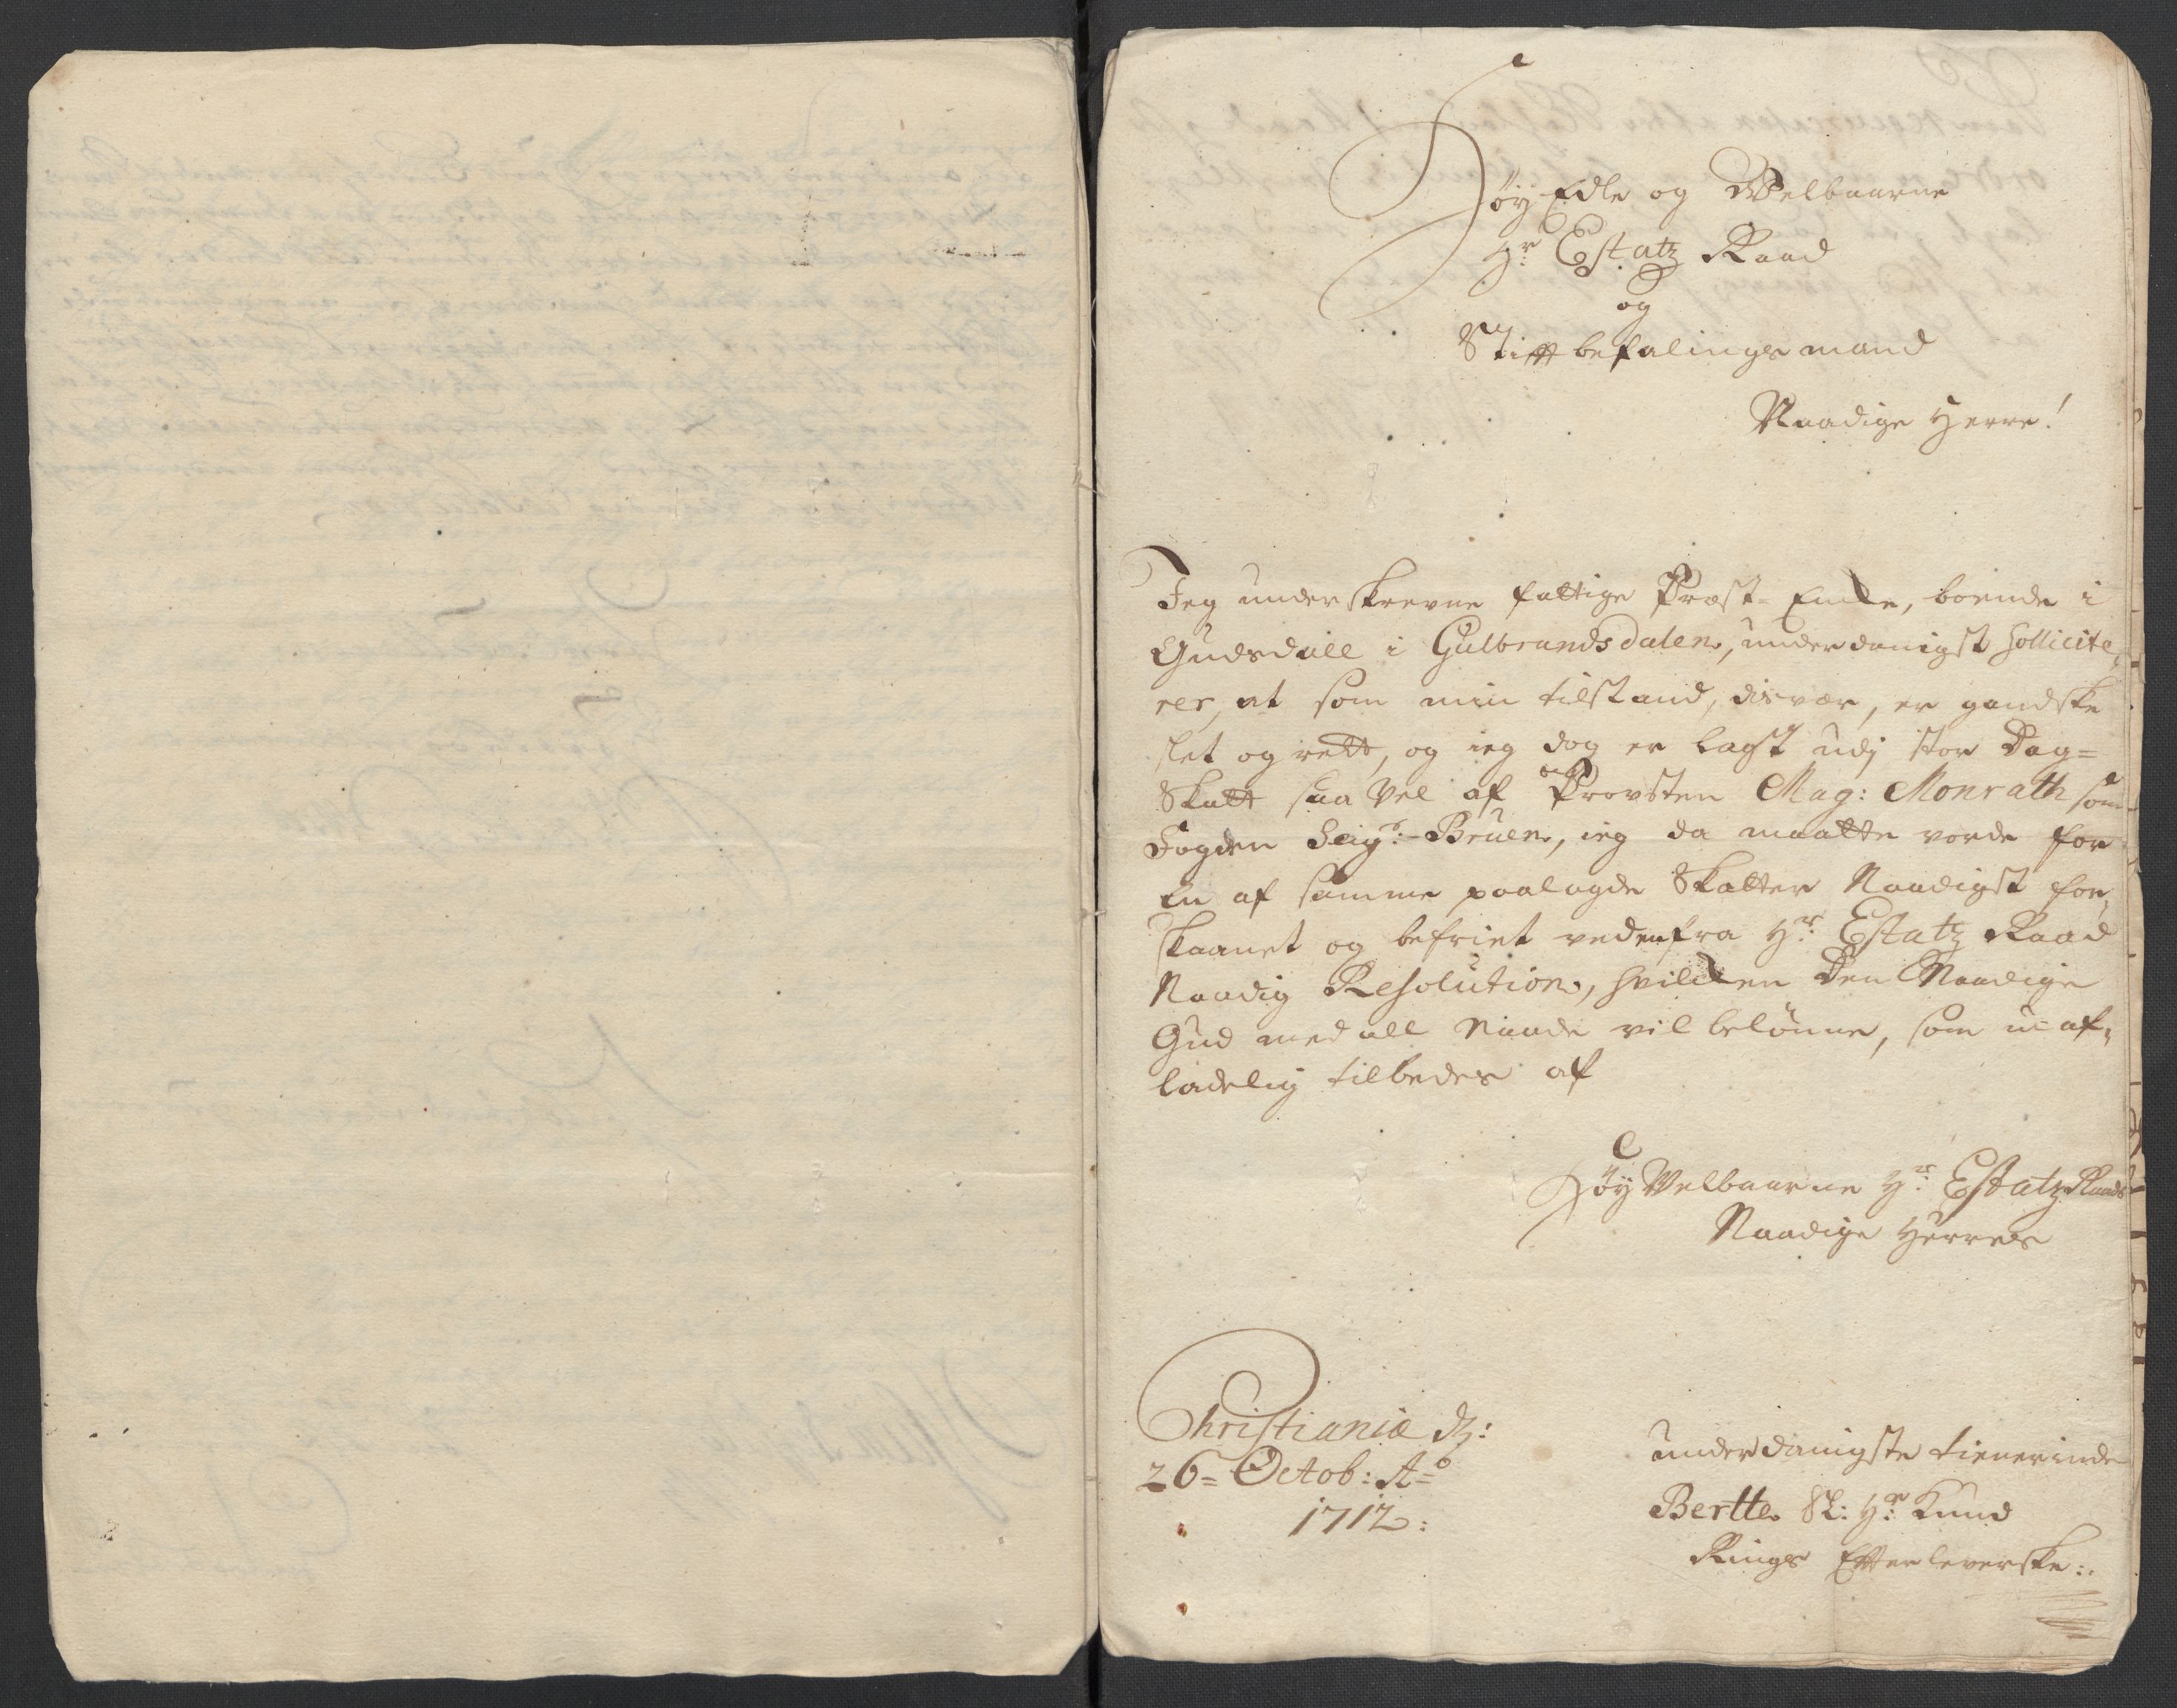 Høy Edle og Welbaarne
Hr: Estatz Raad
og
Stifft befalings mand
Naadige Herre!
Jeg underskrevne fattige Præst-Encke, boende i
Gudsdall i Gulbrandsdalen, underdanigst sollicite,
rer, at som min tilstand, disvær, er gandske
slet og rett, og ieg dog er lagt udj stor Dag=
Skatt saa vel af Provsten Mag: Monrath som
Fogden Seigr: Bruen, ieg da maatte vorde for
En af samme paalagde Skatter Naadigst for,
skaanet og befriet ved en fra Hr: Estatz Raad
Naadig Resolution, hvilcken Den Naadige
Gud med all Naade vil belønne, som u-af,
ladelig tilbedes af
Høy Welbaarne Hr: Estatz Raads
Naadige Herres
Christiania dz:
26= Octob: Ao
1712:
underdanigste tienerinde
Bertte Sl: Hr: Knud
Rings Efterleverske:.